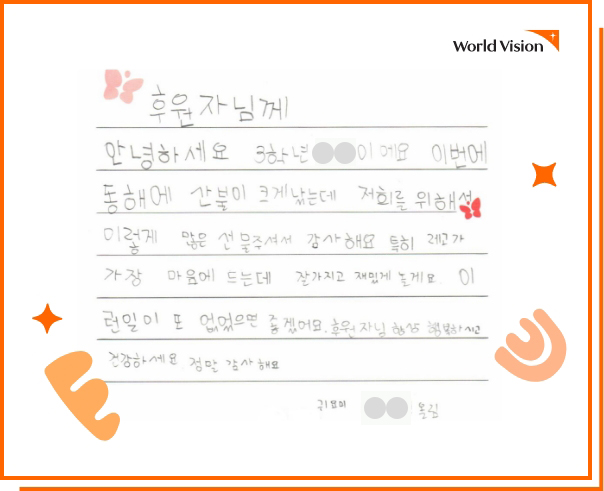 World Vision
후원자님께
안녕하세요 3학년 이에요 이번에
동해에 산불이 크게났는데 저희를 위해서
이렇게 많은 선물주셔서 감사해요 특히 레고가
가장 마음에 드는데 잘가지고 재밌게 놀게요. 이
런일이 또 없었으면 좋겠어요. 후원자님 항상 행복하시고
건강하세요 정말 감사해요
귀요미 올림